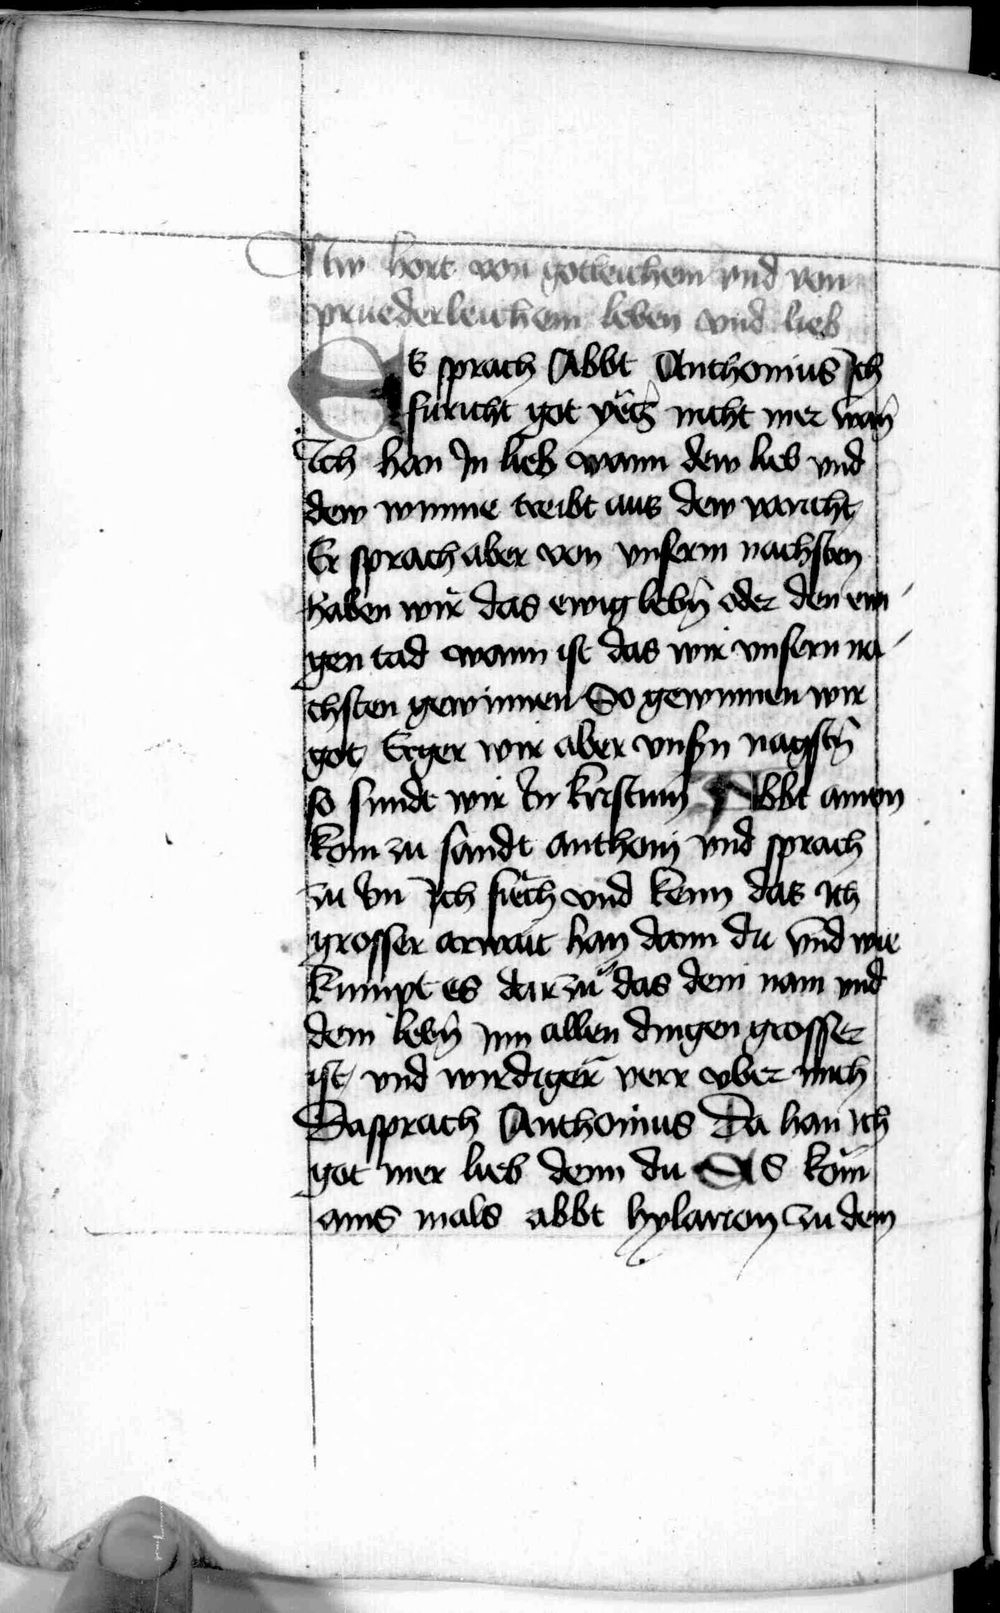 Nw hort von gotleichem vnd von
pruederleichem leben vnd lieb
Es sprach Abbt Anthonius Ich
furicht got yecz nicht mer wan̄
Ich han In lieb wann dew lieb vnd
dew mynne treibt aus dew voricht
Er sprach aber von vnserm nachsten
haben wir das ewig lebn̄ oder den ewi
gen tad wann ist das wir vnsern na
chsten gewinnen So gewinnen wir
got Erger wir aber vnsn̄ nagstn̄
so sundt wir In kristum Abbt amon
kom zu sandt anthonj vnd sprach
zu Im Ich siech vnd kenn das Ich
grosser arwait han dann du vnd wie
kumpt es darzu das dein nam vnd
dein lebn̄ inn allen dingen grosser
ist vnd wirdiger verr vber mich
Da sprach Anthonius Da han Ich
got mer lieb denn du Es kom
ains mals abbt hylarion zu dem